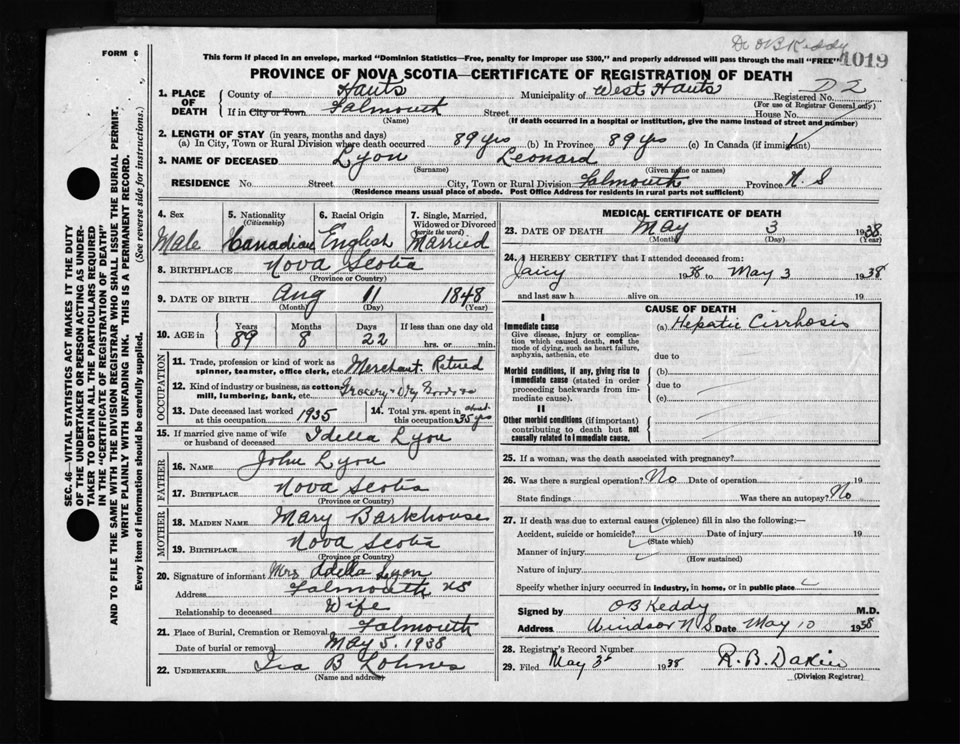 Dr OB Keddy
FORM 6
This form if placed in an envelope, marked "Dominion Statistics—Free, penalty for improper use $300," and properly addressed will pass through the mail "FREE"
1019
PROVINCE OF NOVA SCOTIA—CERTIFICATE OF REGISTRATION OF DEATH
1. PLACE OF DEATH
County of Hants Municipality of West Hants Registered No. D2
(For use of Registrar General only)
If in City or Town Falmouth Street House No.
(Name) (If death occurred in a hospital or institution, give the name instead of street and number)
2. LENGTH OF STAY (in years, months and days)
(a) In City, Town or Rural Division where death occurred 89 yrs (b) In Province 89 yrs (c) In Canada (if immigrant)
3. NAME OF DECEASED Lyon Leonard
(Surname) (Given name or names)
RESIDENCE No. Street City, Town or Rural Division Falmouth Province N.S
(Residence means usual place of abode. Post Office Address for residents in rural parts not sufficient)
4. Sex Male
5. Nationality (Citizenship) Canadian
6. Racial Origin English
7. Single, Married, Widowed or Divorced (write the word) Married
8. BIRTHPLACE Nova Scotia
(Province or Country)
9. DATE OF BIRTH Aug 11 1848
(Month) (Day) (Year)
10. AGE in Years Months Days If less than one day old
89 8 22 hrs. or min.
OCCUPATION
11. Trade, profession or kind of work as spinner, teamster, office clerk, etc. Merchant Retired
12. Kind of industry or business, as cotton mill, lumbering, bank, etc. Grocery & Dry Goods
13. Date deceased last worked at this occupation 1935
14. Total yrs. spent in this occupation about 35 yrs
15. If married give name of wife or husband of deceased Idella Lyon
FATHER
16. NAME John Lyon
17. BIRTHPLACE Nova Scotia
(Province or Country)
MOTHER
18. MAIDEN NAME Mary Barkhouse
19. BIRTHPLACE Nova Scotia
(Province or Country)
20. Signature of informant Mrs Idella Lyon
Address Falmouth NS
Relationship to deceased Wife
21. Place of Burial, Cremation or Removal Falmouth
Date of burial or removal May 5. 1938
22. UNDERTAKER Ira B Lohnes
(Name and address)
MEDICAL CERTIFICATE OF DEATH
23. DATE OF DEATH May 3 1938
(Month) (Day) (Year)
24. I HEREBY CERTIFY that I attended deceased from:
1938 to May 3 1938
and last saw h alive on 19
CAUSE OF DEATH
I
Immediate cause (a) Hepatic Cirrhosis
Give disease, injury or complication which caused death, not the mode of dying, such as heart failure, asphyxia, asthenia, etc
due to
Morbid conditions, if any, giving rise to immediate cause (stated in order proceeding backwards from immediate cause).
(b)
due to
(c)
II
Other morbid conditions (if important) contributing to death but not causally related to immediate cause.
25. If a woman, was the death associated with pregnancy?
26. Was there a surgical operation? No Date of operation 19
State findings Was there an autopsy? No
27. If death was due to external causes (violence) fill in also the following:—
Accident, suicide or homicide? Date of injury 19
(State which)
Manner of injury
(How sustained)
Nature of injury
Specify whether injury occurred in industry, in home, or in public place
Signed by OB Keddy M.D.
Address Windsor N S Date May 10 1938
28. Registrar's Record Number
29. Filed May 3 1938 R. B. Dakin
(Division Registrar)
SEC. 46—VITAL STATISTICS ACT MAKES IT THE DUTY OF THE UNDERTAKER OR PERSON ACTING AS UNDERTAKER TO OBTAIN ALL THE PARTICULARS REQUIRED IN THE "CERTIFICATE OF REGISTRATION OF DEATH" AND TO FILE THE SAME WITH THE DIVISION REGISTRAR WHO SHALL ISSUE THE BURIAL PERMIT.
WRITE PLAINLY WITH UNFADING INK. THIS IS A PERMANENT RECORD.
Every item of information should be carefully supplied. (See reverse side for instructions.)